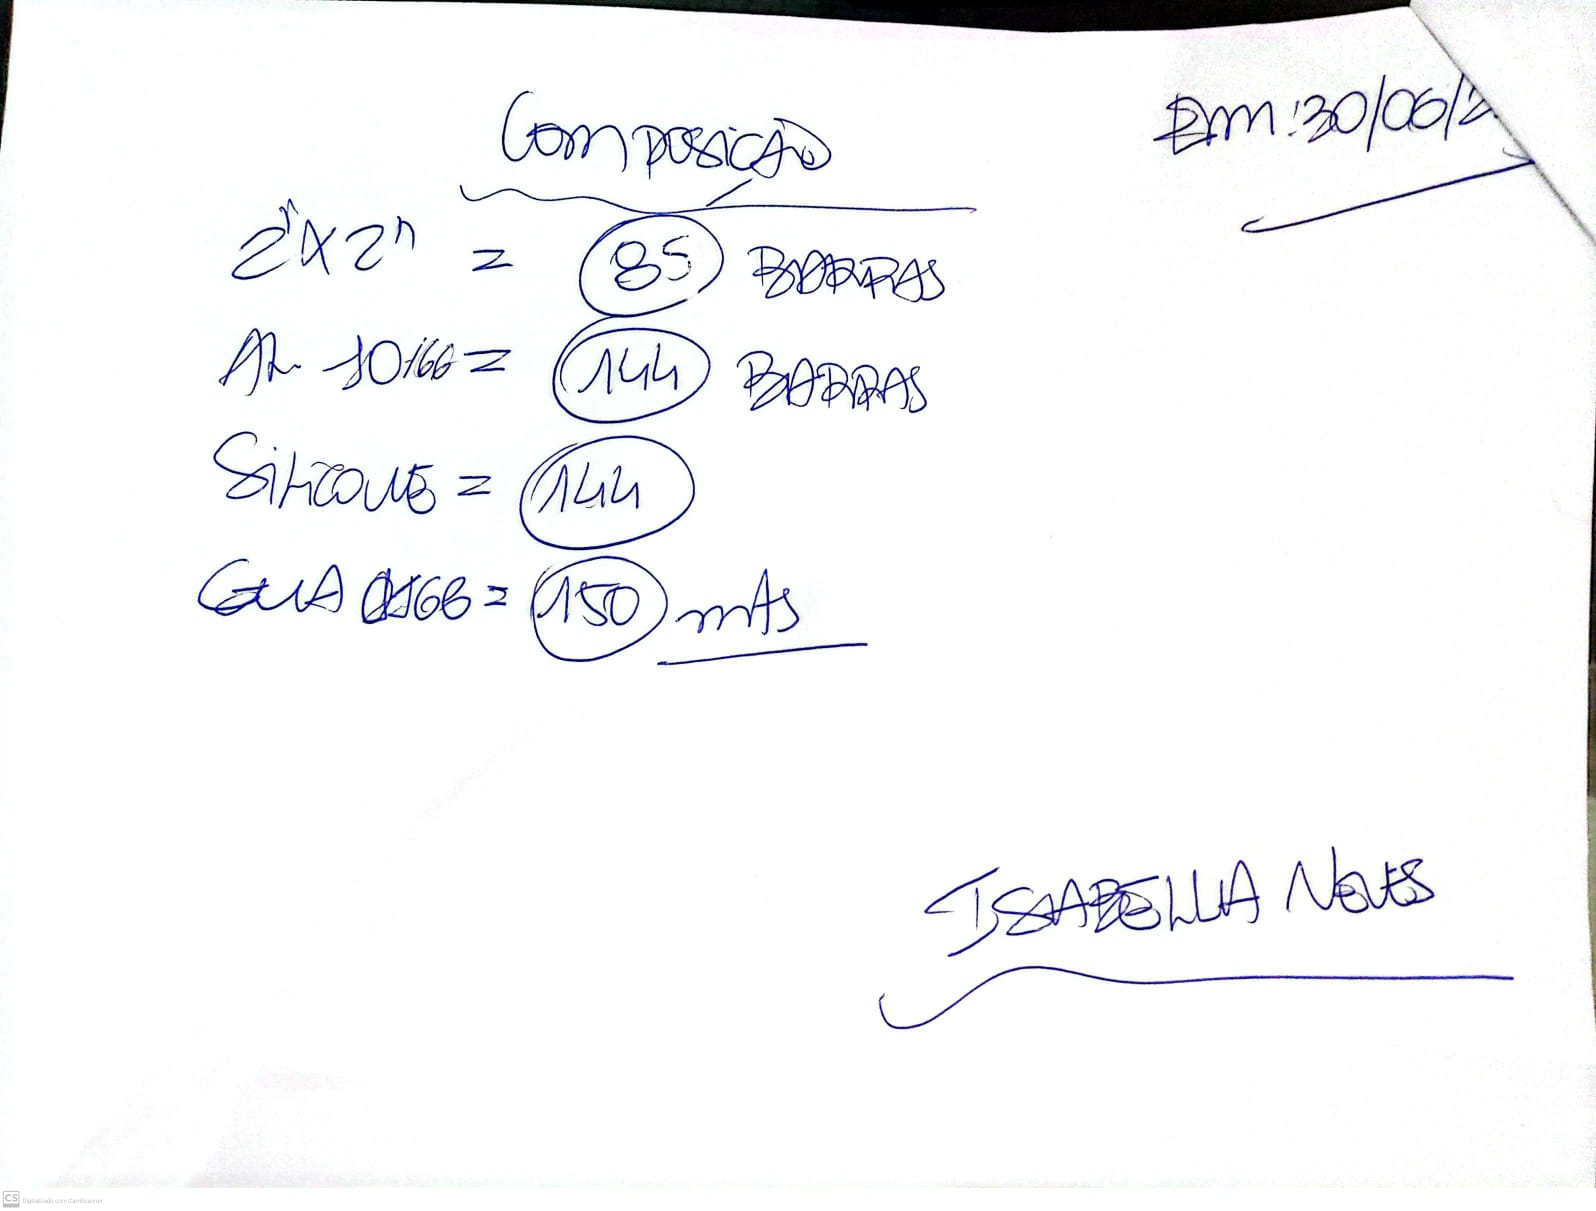 Composição
Em: 30/06/2
2"x2" = 85 BARRAS
= 144 BARRAS
Silicone = 144
GUIA = 150 mts
ISABELLA NEVES
CS Digitalizado com CamScanner